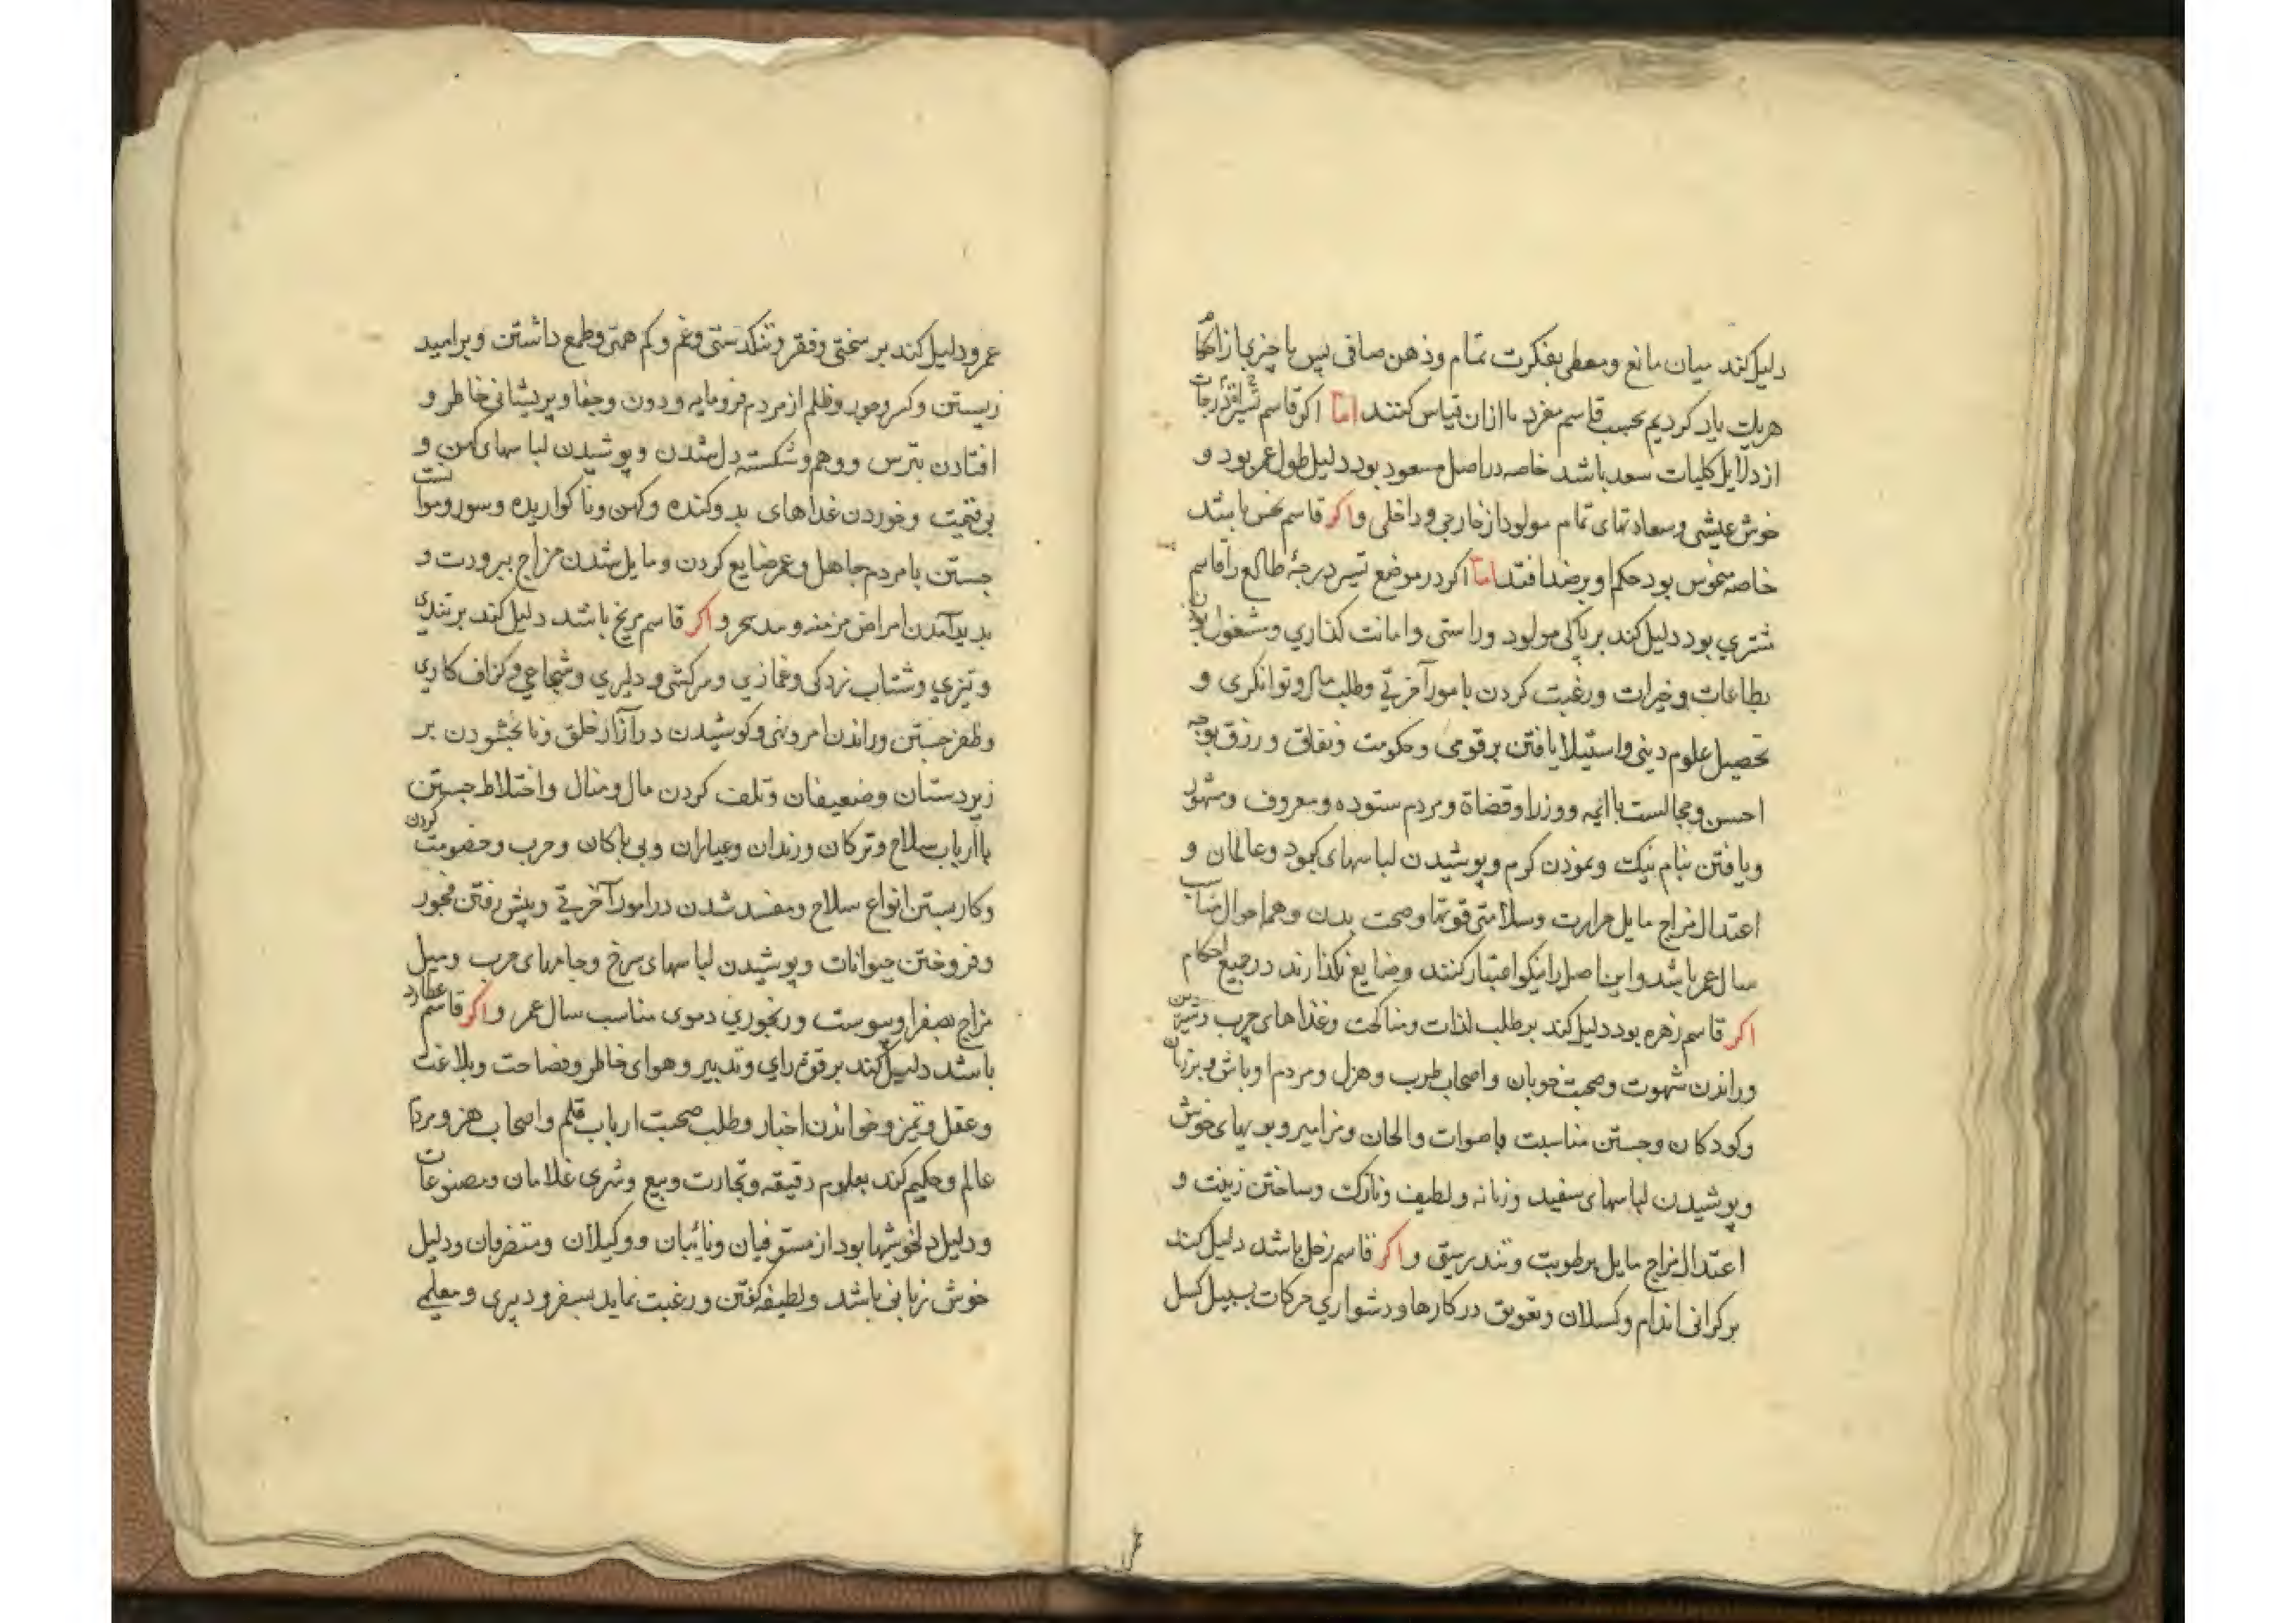 دلیل کند میان مانع و معطی بفکرت تمام و ذهن صافی پس ما چیزی از احکام
هریک یاد کردیم بحسب قاسم مفرد تا ازان قیاس کنند اما اکر قاسم تسییر درجات
از دلایل کلیات سعد باشد خاصه در اصل مسعود بود دلیل طول عمر بود و
خوش عیشی و سعادتهای تمام مولود از خارجی و داخلی و اکر قاسم نحس باشد
خاصه منحوس بود حکم او بر ضد افتد اما اکر در موضع تسیر درجهٔ طالع را قاسم
مشتری بود دلیل کند بر پاکی مولود و راستی و امانت کذاری و مشغول بودن
بطاعات و خیرات و رغبت کردن بامور آخرتی و طلب مال و توانکری و
تحصیل علوم دینی و استیلا یافتن بر قومی و حکومت و نفاق و رزق بوجه
احسن و مجالست با ایمه و وزرا و قضاة و مردم ستوده و معروف و مشهور
و یافتن بنام نیک و نمودن کرم و پوشیدن لباسهای کبود و عالمان و
اعتدال مزاج مایل حرارت و سلامتی قوتها و صحت بدن و همه احوال مناسب
سال عمر باشد و این اصل را نیکو اعتبار کنند و ضایع نکذارند در جمیع احکام
اکر قاسم زهره بود دلیل کند بر طلب لذات و مناکحت و غذاهای چرب و شیرین
و راندن شهوت و صحبت خوبان و اصحاب طرب و هزل و مردم اوباش و بزنان
و کودکان و جستن مناسبت باصوات و الحان و مزامیر و بویهای خوش
و پوشیدن لباسهای سفید و زنانه و لطیف و نازک و ساختن زینت و
اعتدال مزاج مایل برطوبت و تندرستی و اکر قاسم زحل باشد دلیل کند
بر کرانی اندام و کسلان و تعویق در کارها و دشواری حرکات بسبیل کسل
عمر و دلیل کند بر سختی و فقر و تنکدستی و غم و کم همتی و طمع داشتن و برامید
زیستن و مکر و جور و ظلم از مردم فرومایه و دون و جفا و پریشانی خاطر و
افتادن بترس و وهم و شکسته دل شدن و پوشیدن لباسهای کهن و
بی قیمت و خوردن غذاهای بد و کنده و کهن و ناکواریده و سور و موانست
جستن با مردم جاهل و عمر ضایع کردن و مایل شدن مزاج ببرودت و
بدید آمدن امراض مزمنه و و اکر قاسم مریخ باشد دلیل کند بر تندی
و تیزی و شتاب زدکی و غمازی و سرکشی و دلیری و شجاعی و کزاف کاری
و ظفر جستن و راندن امر و نهی و کوشیدن در آزار خلق و نابخشودن بر
زیردستان و ضعیفان و تلف کردن مال و منال و اختلاط جستن
با ارباب سلاح و ترکان و رندان و عیاران و بی باکان و حرب و خصومت کردن
و کار بستن انواع سلاح و مفسد شدن در امور آخرتی و پیش رفتن فجور
و فروختن حیوانات و پوشیدن لباسهای سرخ و جامهای حرب و میل
مزاج بصفرا و یبوست و رنجوری دموی مناسب سال عمر و اکر قاسم عطارد
باشد دلیل کند بر قوة رای و تدبیر و هوای خاطر و فصاحت و بلاغت
و عقل و تمیز و خواندن اخبار و طلب صحبت ارباب قلم و اصحاب هنر و مردم
عالم و حکیم کند بعلوم دقیقه و تجارت و بیع و شری غلامان و مصنوعات
و دلیل دلخوشیها بود از مستوفیان و نائبان و وکیلان و متصرفان و دلیل
خوش زبانی باشد و لطیفه کفتن و رغبت نماید بسفر و دبیری و معلمی